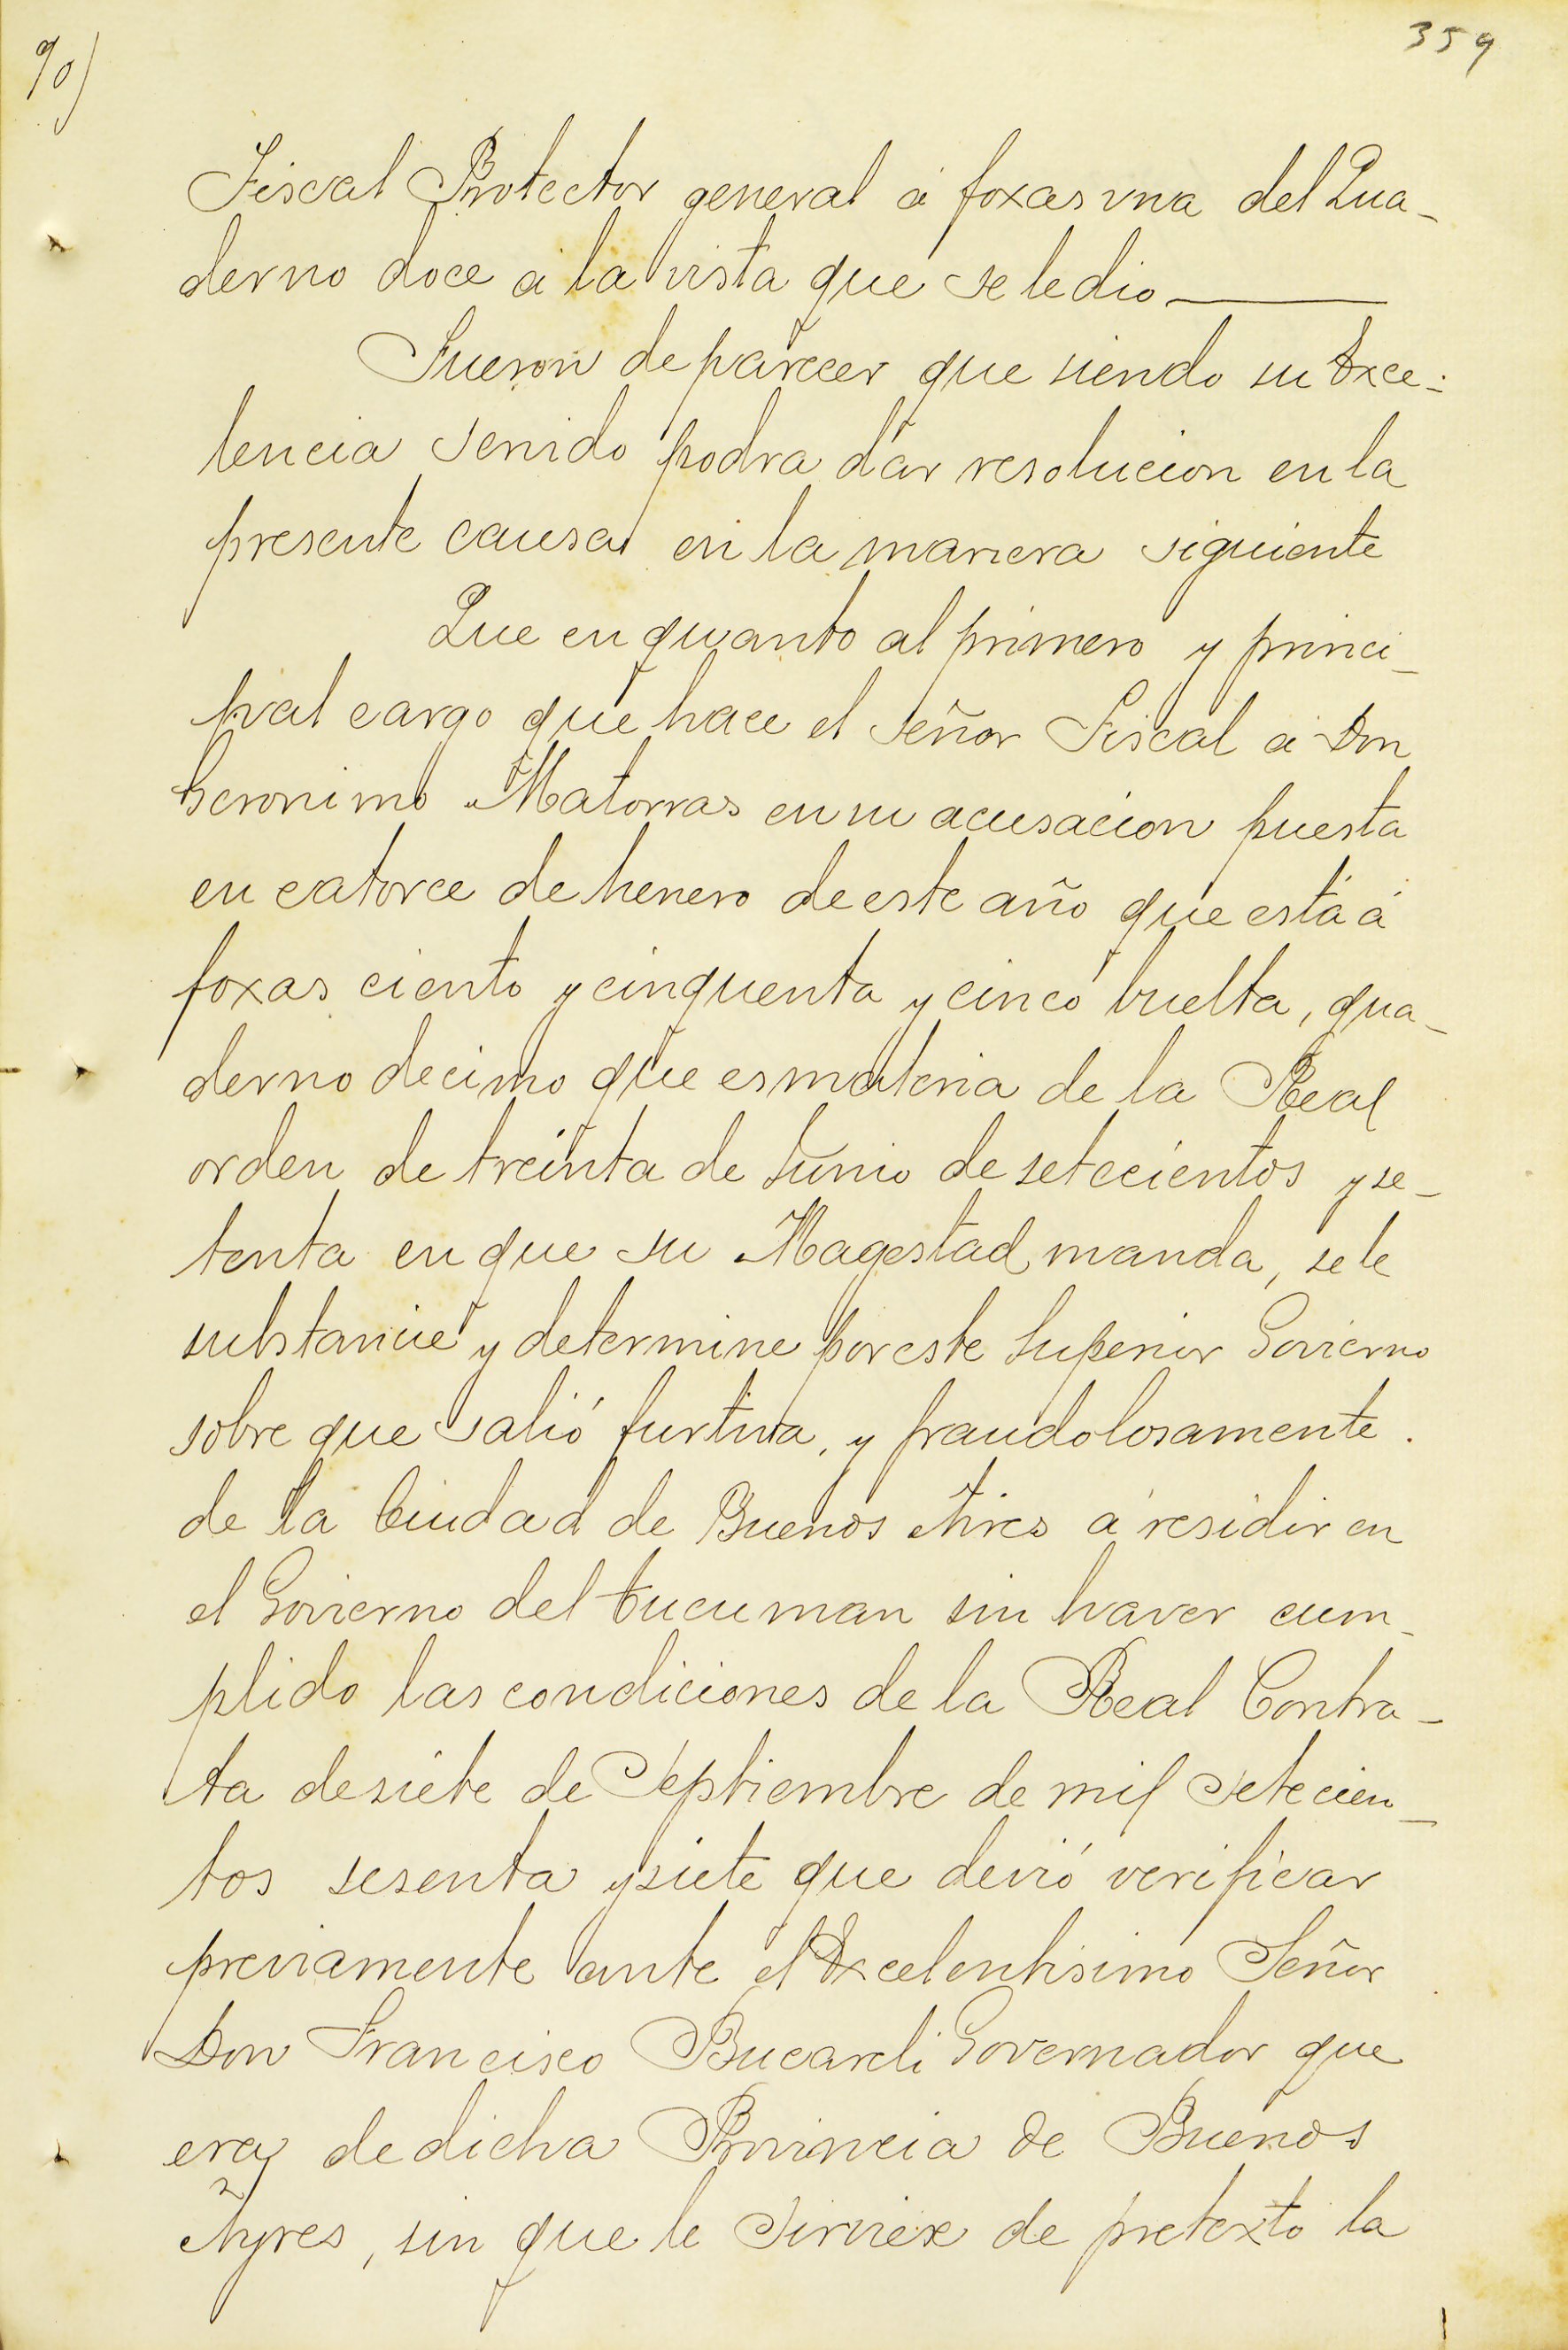 90)
359
Fiscal Protector general á foxas vna del Qua-
derno doce á la vista que se le dio
Fueron de parecer que siendo su Exce-
lencia servido podra dár resolucion en la
presente causa en la manera siguiente
Que en quanto al primero y princi-
pal cargo que hace el señor Fiscal á Don
Geronimo Matorras en su acusacion puesta
en catorce de henero de este año que está á
foxas ciento y cinquenta y cinco buelta, qua-
derno decimo que es materia de la Real
orden de treinta de Junio de setecientos y se-
tenta en que su Magestad manda, se le
substancie y determine por este Superior Govierno
sobre que salió furtiva, y fraudolosamente.
de la Ciudad de Buenos Aires á residir en
el Govierno del Tucuman sin haver cum-
plido las condiciones de la Real Contra-
ta de siete de Septiembre de mil setecien-
tos sesenta y siete que devió verificar
previamente ante el Excelentisimo Señor
Don Francisco Bucareli Governador que
era de dicha Provincia de Buenos
Ayres, sin que le sirviese de pretexto la